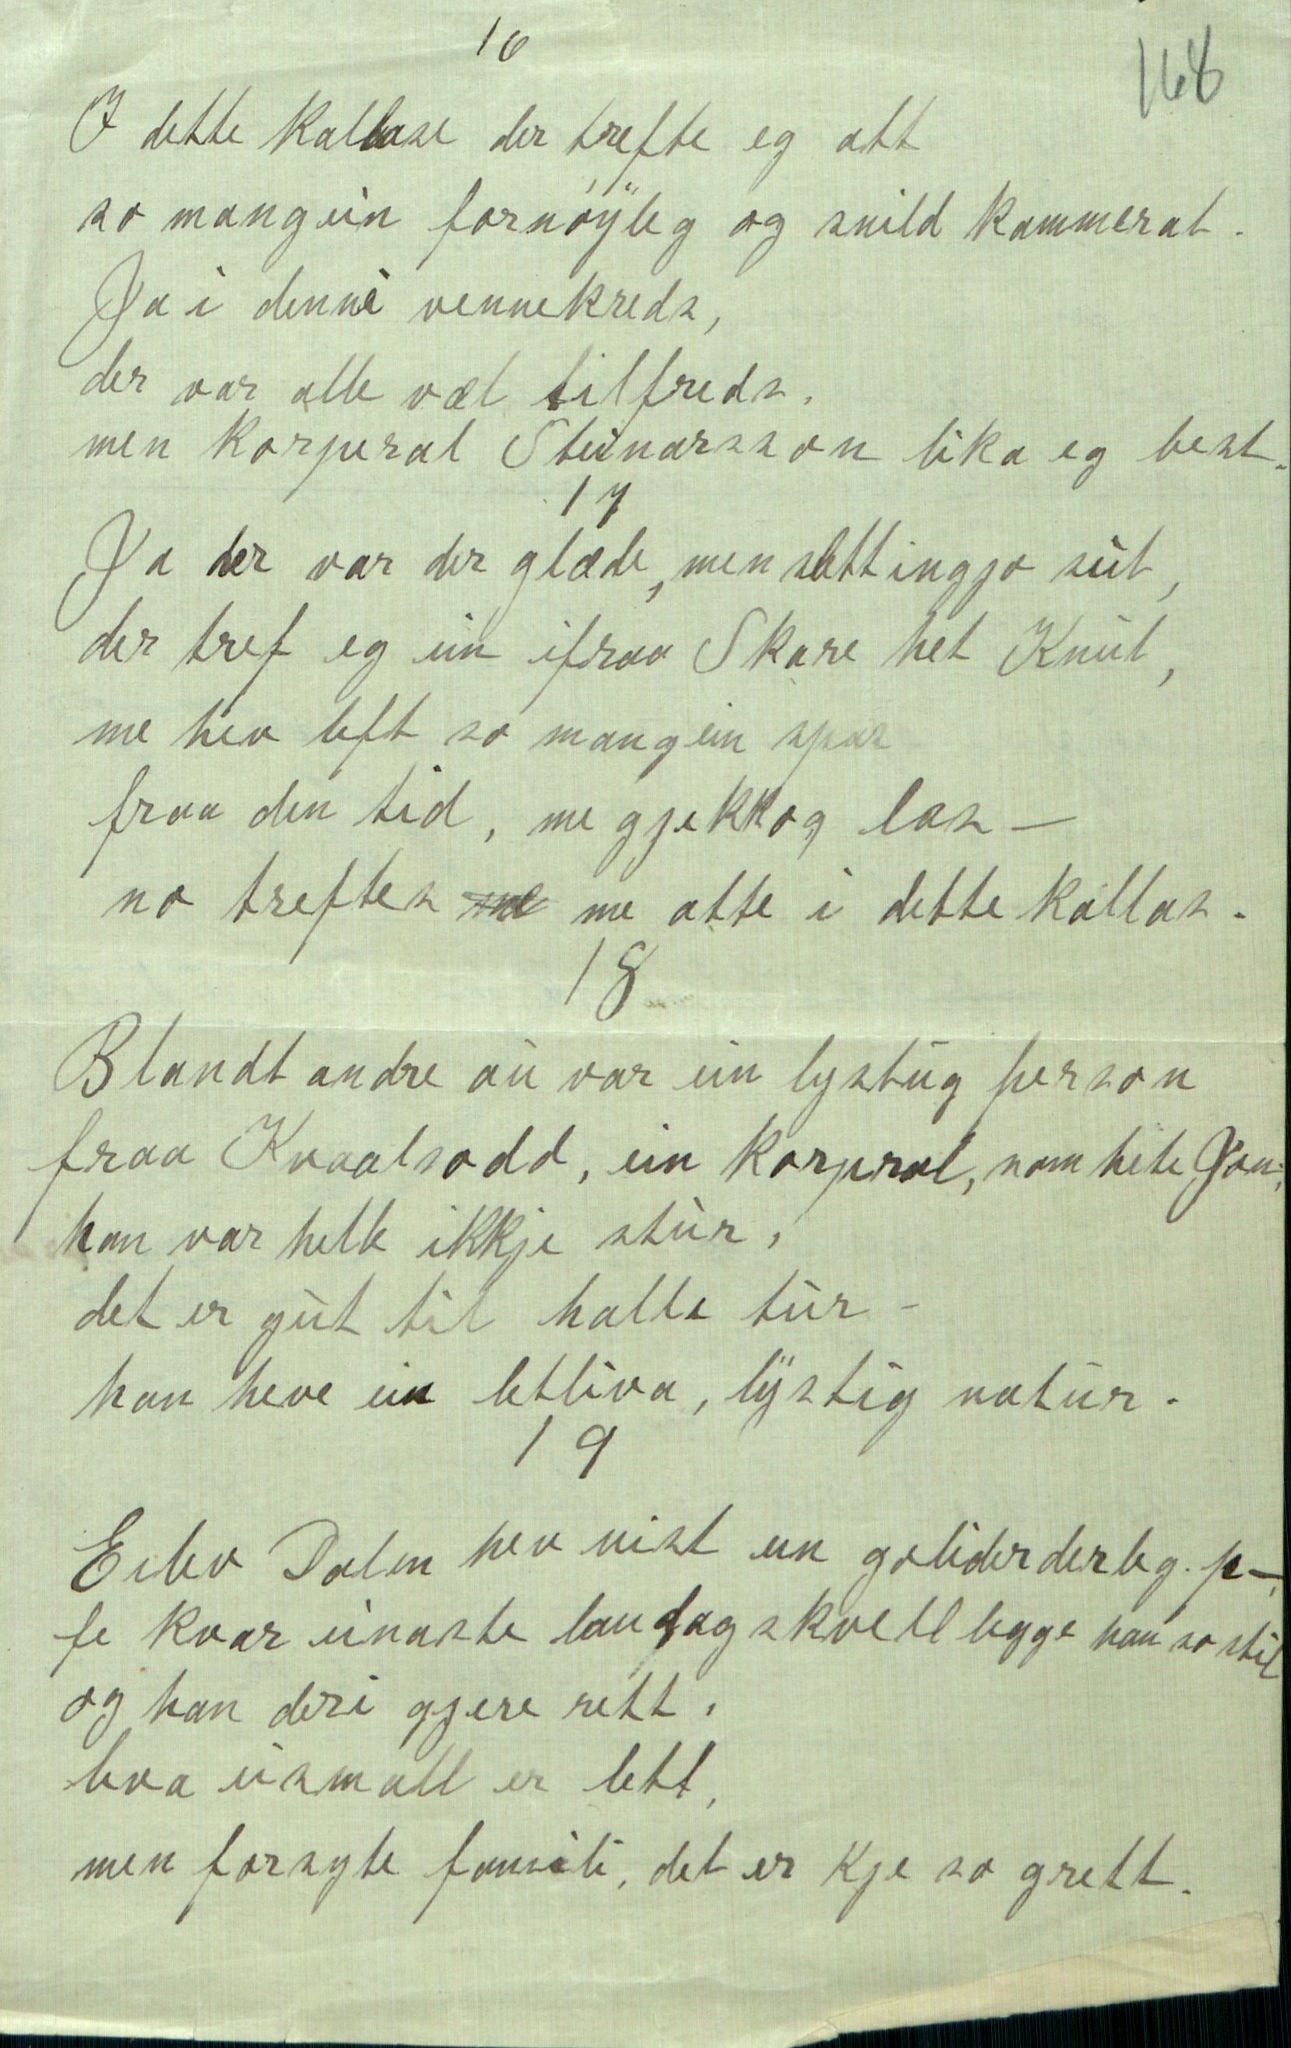 16
168
I dette kallase der trefte eg att
so mangein fornøyleg og snild kammerat.
Ja i denne vennekreds,
der var alle væl tilfreds.
men korperal Steinarsson lika eg best.
17
Ja der var der glæde, men slett ingjo sut,
der tref eg ein ifraa Skare het Knut,
me hev left so mangein spas
fraa den tid, me gjekk og las –
no treftes me atte i dette kallas.
18
Blandt andre au var ein lystug person
fraa Kvaalsodd, ein korpral, som hete Jon;
han var helle ikkje stur,
det er gut til halle tur –
han heve ein letliva, lystig natur.
19
Eilev Dalen hev vist en
fe kvar einaste laugdagskvell legge han so stil
og han deri gjere rett,
leva eismall er lett,
men forsyte famili, det er kje so grett.